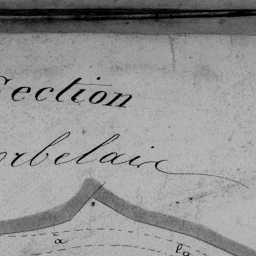 Section
orbelaix
a
la